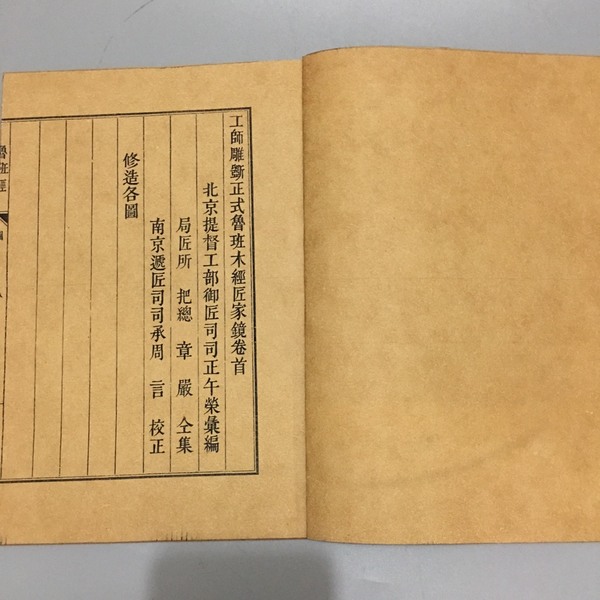 工師雕斵正式魯班木經匠家鏡卷首
北京提督工部御匠司司正午榮彙編
局匠所 把總 章 嚴 仝集
南京遞匠司司承周 言 校正
修造各圖
魯班經